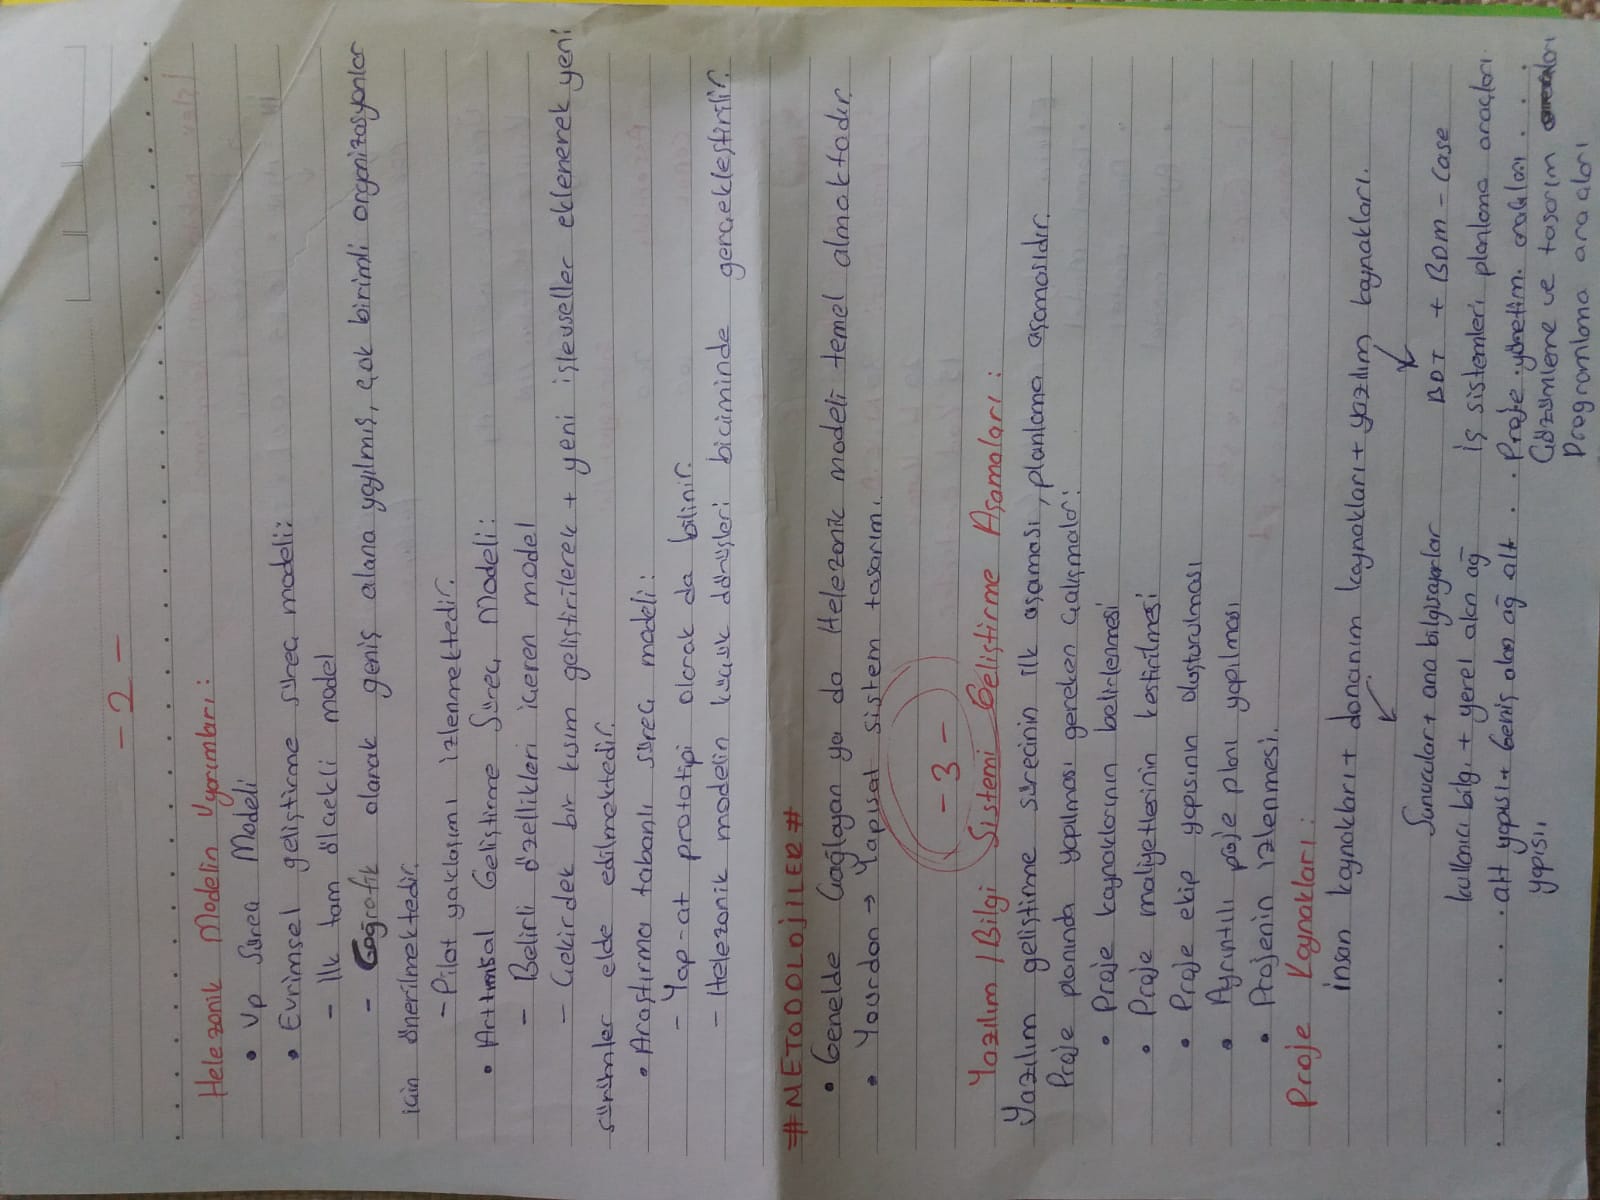 - 2 -
Helezonik Modelin Uyarımları:
• Vp Süreç Modeli
• Evrimsel geliştirme süreç modeli:
- İlk tam ölçekli model
- Coğrafik olarak geniş alana yayılmış, çok birimli organizasyonlar
için önerilmektedir.
- Pilot yaklaşımı izlenmektedir.
• Arttımsal Geliştirme Süreç Modeli:
- Belirli özellikleri içeren model
- Çekirdek bir kısım geliştirilerek + yeni işlevseller eklenerek yeni
sürümler elde edilmektedir.
• Araştırma tabanlı süreç modeli:
- Yap-at prototipi olarak da bilinir.
- Helezonik modelin küçük dönüşleri biçiminde gerçekleştirilir.
#METODOLOJİLER#
• Genelde Çağlayan ya da Helezonik modeli temel almaktadır.
• Yourdon → Yapısal sistem tasarımı.
- 3 -
Yazılım / Bilgi Sistemi Geliştirme Aşamaları:
Yazılım geliştirme sürecinin ilk aşaması, planlama aşamasıdır.
Proje planında yapılması gereken çalışmalar:
• Proje kaynaklarının belirlenmesi
• Proje maliyetlerinin kestirilmesi
• Proje ekip yapısının oluşturulması
• Ayrıntılı poje planı yapılması
• Projenin izlenmesi.
Proje Kaynakları:
insan kaynakları + donanım kaynakları + yazılım kaynakları.
Sunucular + ana bilgisayarlar
BDT + BDM - Case
kullanıcı bilg. + yerel alan ağ
İş sistemleri planlama araçları
alt yapısı + Geniş alan ağ alt
Proje yönetim araçları
yapısı
Çözümleme ve tasarım
Programlama araçları